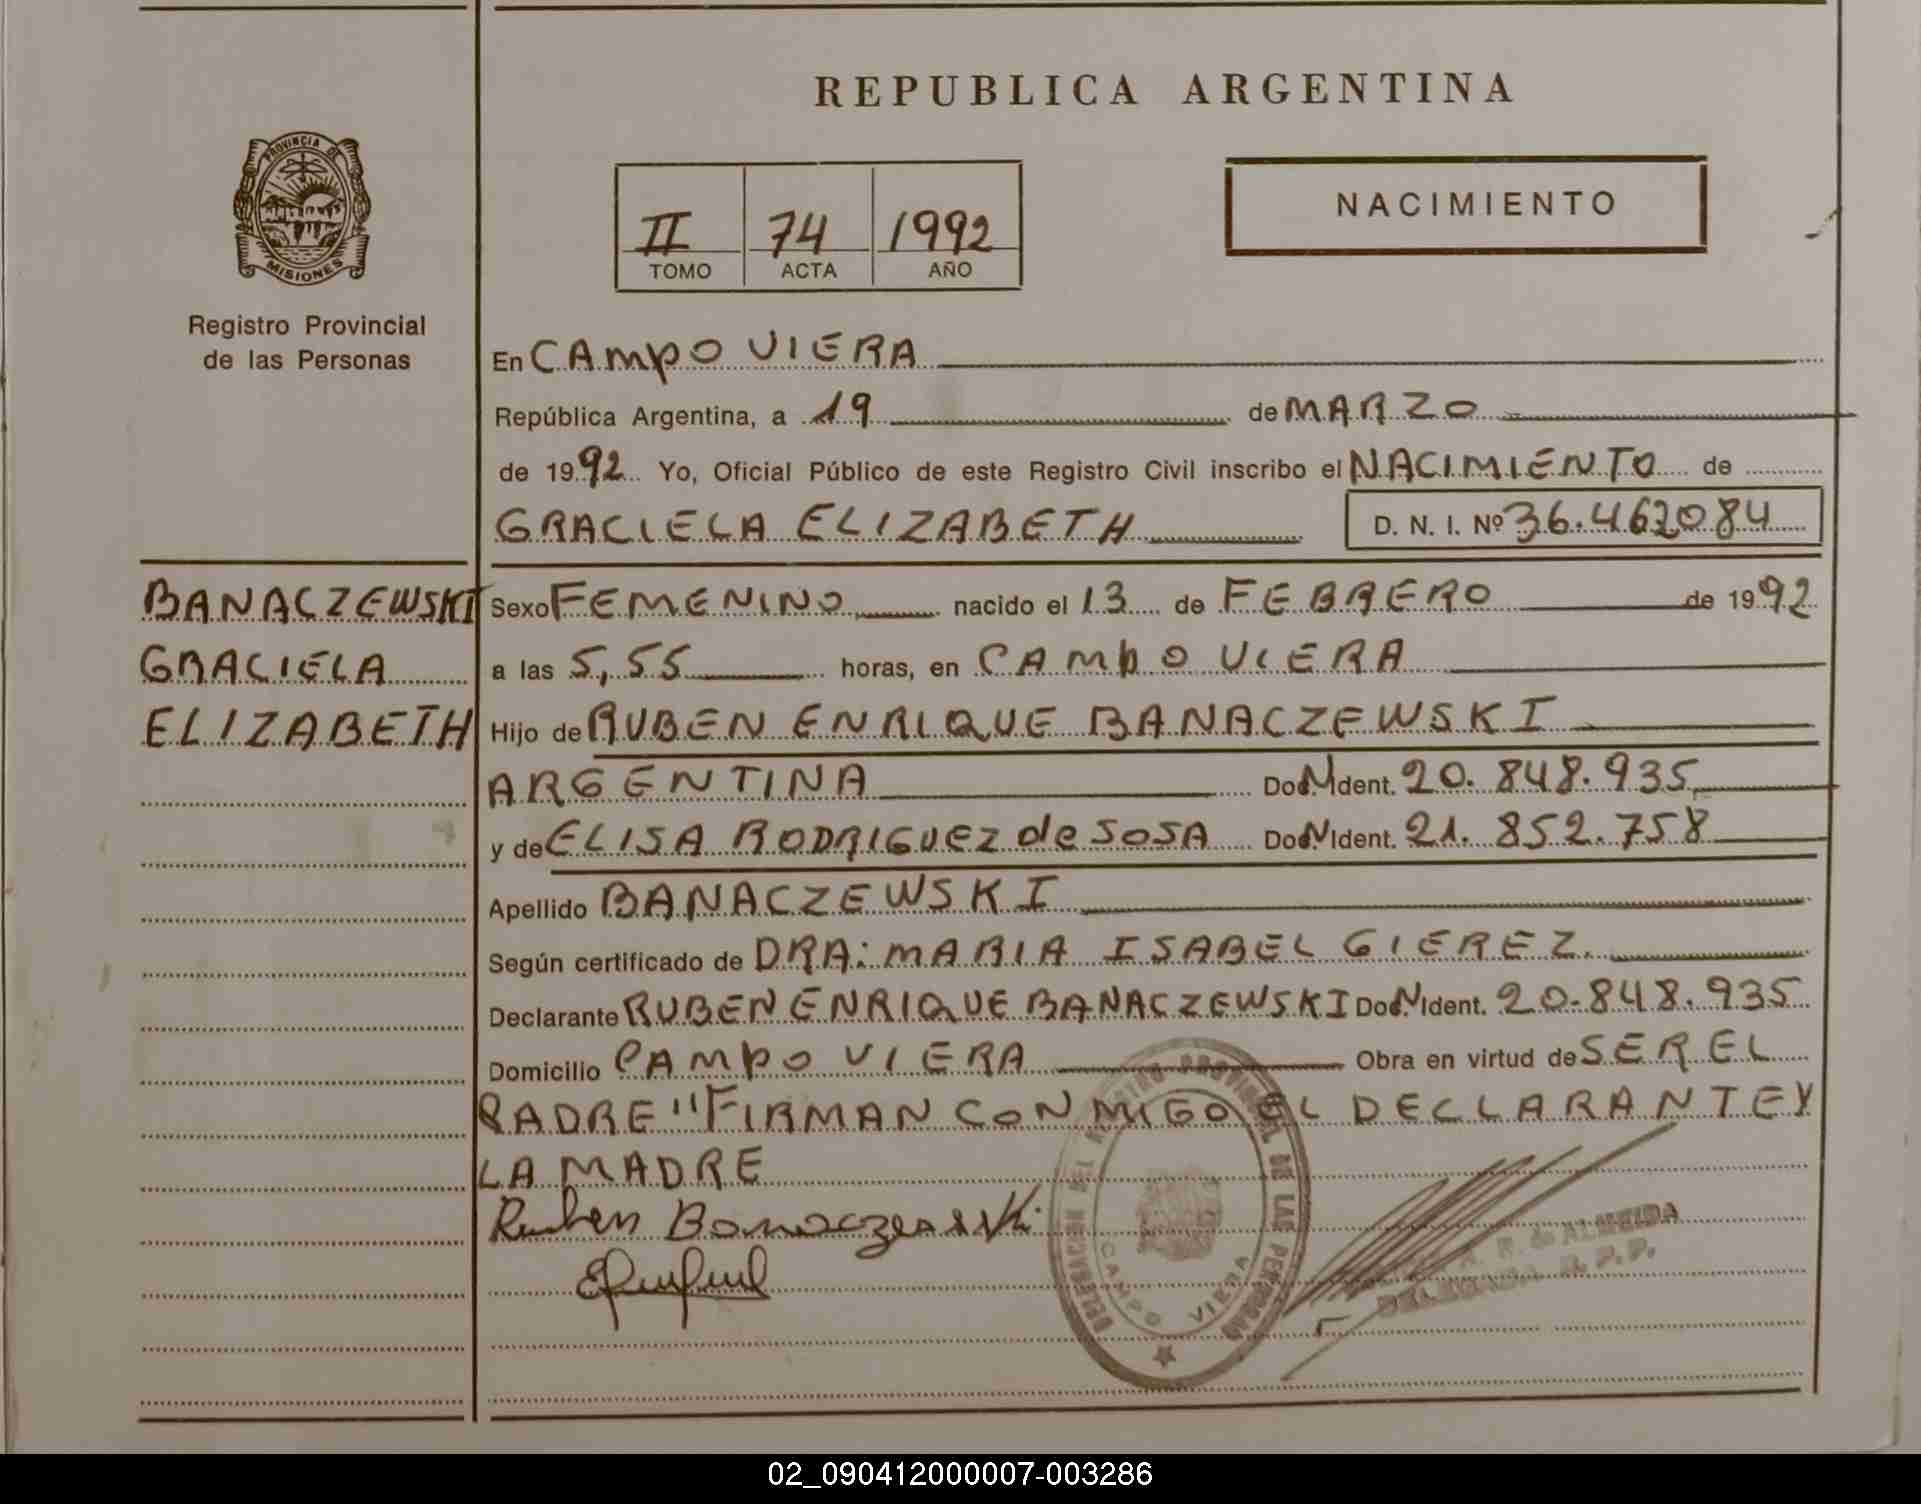 REPUBLICA ARGENTINA
PROVINCIA DE
MISIONES
Registro Provincial
de las Personas
II 74 1992
TOMO ACTA AÑO
NACIMIENTO
En CAMPO VIERA
República Argentina, a 19 de MARZO
de 1992 Yo, Oficial Público de este Registro Civil inscribo el NACIMIENTO de
GRACIELA ELIZABETH D. N. I. Nº 36.462084
BANACZEWSKI
GRACIELA
ELIZABETH
Sexo FEMENINO nacido el 13 de FEBRERO de 1992
a las 5,55 horas, en CAMPO VIERA
Hijo de RUBEN ENRIQUE BANACZEWSKI
ARGENTINA Doc.N Ident. 20.848.935
y de ELISA RODRIGUEZ de SOSA Doc.N Ident. 21.852.758
Apellido BANACZEWSKI
Según certificado de DRA: MARIA ISABEL GIEREZ.
Declarante RUBEN ENRIQUE BANACZEWSKI Doc.N Ident. 20.848.935
Domicilio CAMPO VIERA Obra en virtud de SER EL
PADRE "FIRMAN CON MIGO EL DECLARANTE Y
LA MADRE
Ruben Banaczewski
DELEGACION DEL REGISTRO PROVINCIAL DE LAS PERSONAS
CAMPO VIERA
A. R. de ALMEIDA
DELEGADA R. P. P.
02_090412000007-003286